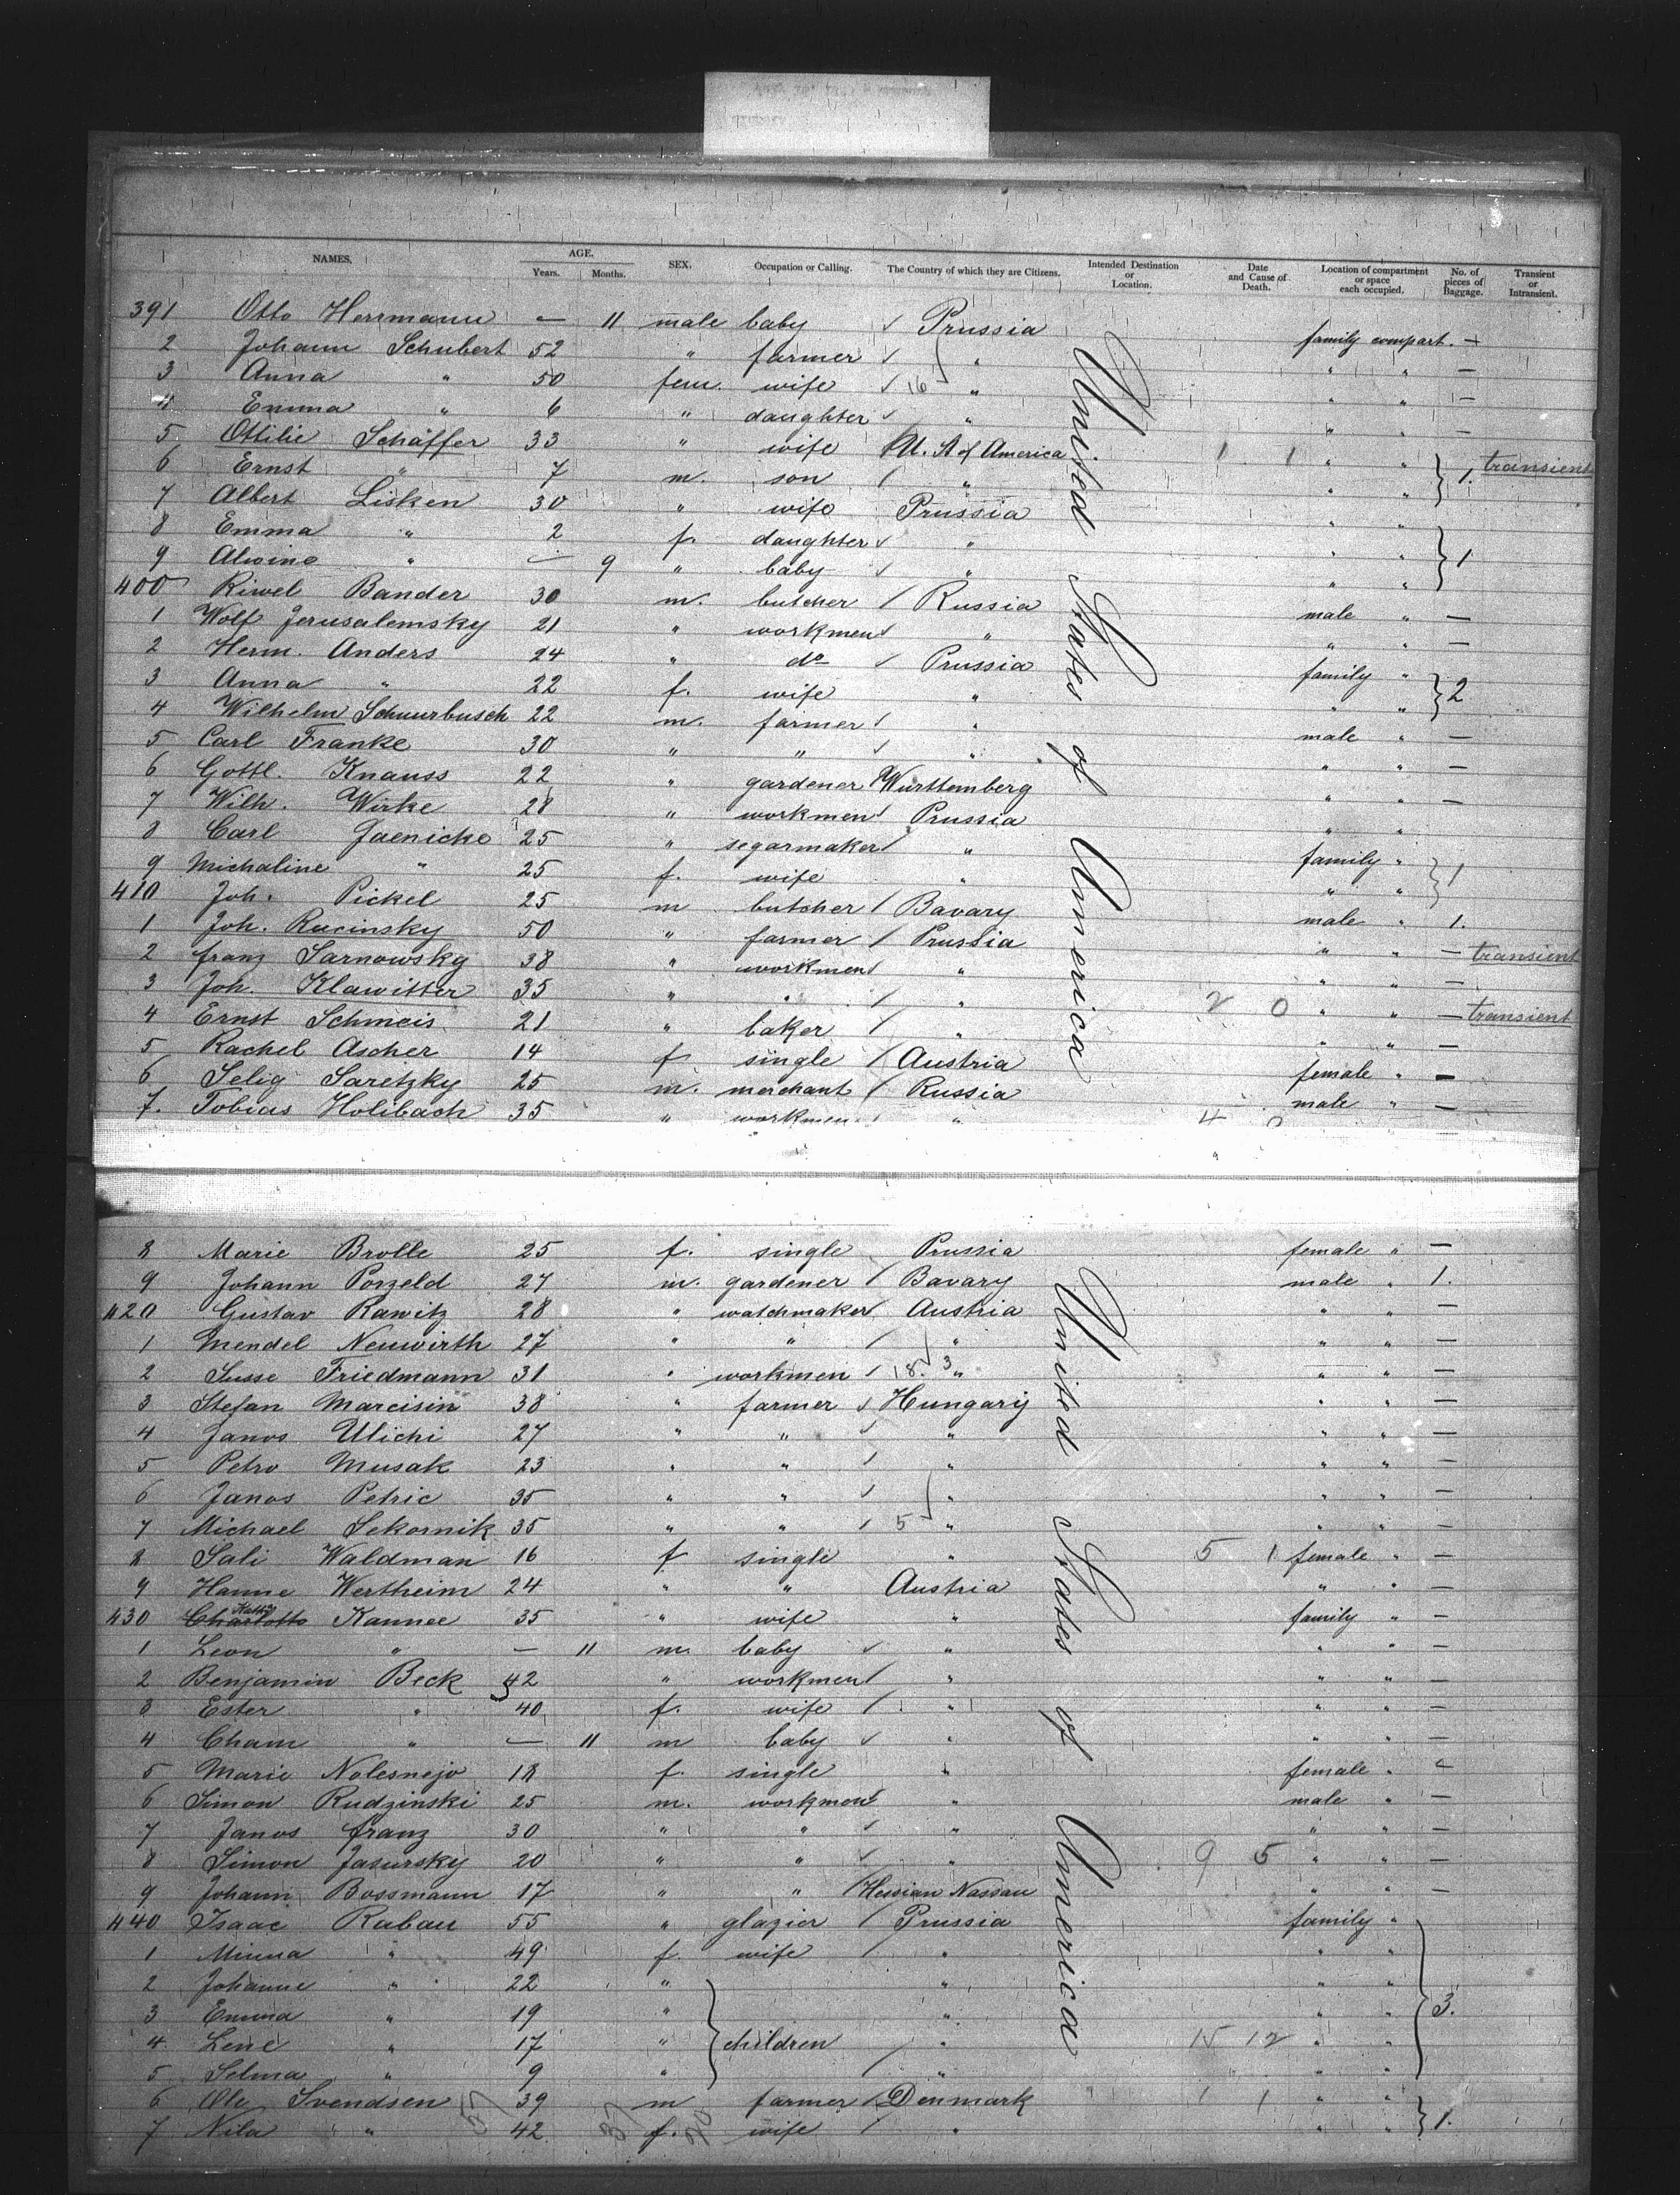 NAMES. AGE. Years. Months. SEX. Occupation or Calling. The Country of which they are Citizens. Intended Destination or Location. Date and Cause of Death. Location of compartment or space each occupied. No. of pieces of Baggage. Transient or Intransient.
391 Otto Herrmann — 11 male baby ✓ Prussia family compart. —
2 Johann Schubert 52 " farmer ✓ " " " —
3 Anna " 50 fem. wife ✓ 16 " " " —
4 Emma " 6 " daughter ✓ " " " —
5 Ottilie Schäffer 33 " wife U. St of America 1 1 " " } 1. transient
6 Ernst " 7 m. son / " " "
7 Albert Lisken 30 " wife Prussia " "
8 Emma " 2 f. daughter ✓ " " " } 1
9 Alwine " — 9 " baby ✓ " " "
400 Riwel Bander 30 m. butcher / Russia male " —
1 Wolf Jerusalemsky 21 " workmen ✓ " " " —
2 Herm. Anders 24 " do ✓ Prussia family " } 2
3 Anna " 22 f. wife " " "
4 Wilhelm Schuurbusch 22 m. farmer / " male " —
5 Carl Franke 30 " " ✓ " " " —
6 Gottl. Knauss 22 " gardener Württemberg " " —
7 Wilh. Wirke 28 " workmen / Prussia " "
8 Carl Jaenicke 25 " segarmaker / " family " } 1
9 Michaline " 25 f. wife " " "
410 Joh. Pickel 25 m butcher / Bavary male " 1.
1 Joh. Rucinsky 50 " farmer / Prussia " " — transient
2 franz Sarnowsky 38 " workmen / " " " —
3 Joh. Klawitter 35 " " / " 2 0 " " — transient
4 Ernst Schmeis 21 " baker / " " " —
5 Rachel Ascher 14 f single / Austria female " —
6 Selig Saretzky 25 m. merchant / Russia male " —
7. Tobias Holibach 35 " workmen / " 4 0
8 Marie Brolle 25 f. single Prussia female " —
9 Johann Porzeld 27 m. gardener / Bavary male " 1.
420 Gustav Rawitz 28 " watchmaker / Austria " " —
1 Mendel Neuwirth 27 " " / " " " —
2 Susse Friedmann 31 " workmen / 18. 3 " " " —
3 Stefan Marcisin 38 " farmer ✓ Hungary " " —
4 Janos Ulichi 27 " " ✓ " " " —
5 Petro Musak 23 " " / " " " —
6 Janos Petric 35 " " ✓ " " " —
7 Michael Sekornik 35 " " / 5 " " " —
8 Sali Waldman 16 f single " 5 1 female " —
9 Hanne Wertheim 24 " " Austria " " —
430 Charlotte Kathi Kannee 35 " wife " family " —
1 Leon " — 11 m. baby ✓ " " " —
2 Benjamin Beck 42 " workmen / " " " —
3 Ester " 40 f. wife / " " " —
4 Cham " — 11 m baby ✓ " " " —
5 Marie Nolesnejo 18 f. single " female " —
6 Simon Rudzinski 25 m. workmen ✓ " male " —
7 Janos franz 30 " " ✓ " " " —
8 Simon Jasursky 20 " " ✓ " 9 5 " " —
9 Johann Bossmann 17 " " / Hessian Nassau " " —
440 Isaac Rabau 55 " glazier / Prussia family "
1 Minna " 49 f. wife / " " "
2 Johanne " 22 " " " "
3 Emma " 19 " " " " } 3.
4 Lene " 17 " } children / " 15 12 " "
5 Selma " 9 " / " " "
6 Ole Svendsen 39 m farmer / Denmark 1 1 " " } 1.
7 Nila " 42 f. wife / " " "
United States of America
United States of America